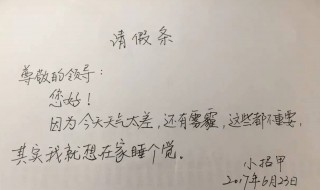 请假条
尊敬的领导：
您好！
因为今天天气太差，还有雾霾，这些都不重要，
其实我就想在家睡个觉。
小招甲
2017年6月23日